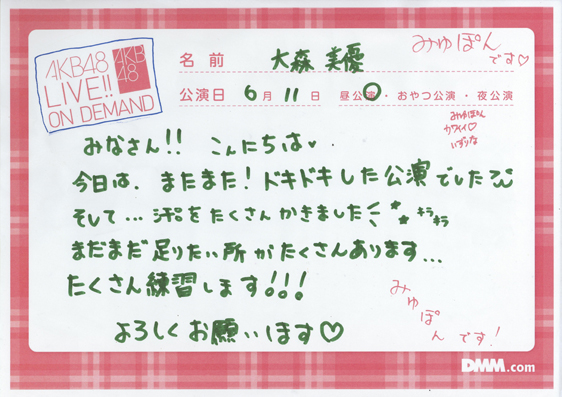 AKB48
LIVE!!
ON DEMAND
AKB
48
名前 大森 美優
みゅぽん
です♡
公演日 6月11日 昼公演・おやつ公演・夜公演
みゅぽん
カワイイ♡
いずりな
みなさん!! こんにちは♥
今日は、またまた!ドキドキした公演でした
そして…汗をたくさんかきました
キラキラ
まだまだ足りたい所がたくさんあります…
たくさん練習します!!!
よろしくお願いします♡
みゅぽんです!
DMM.com